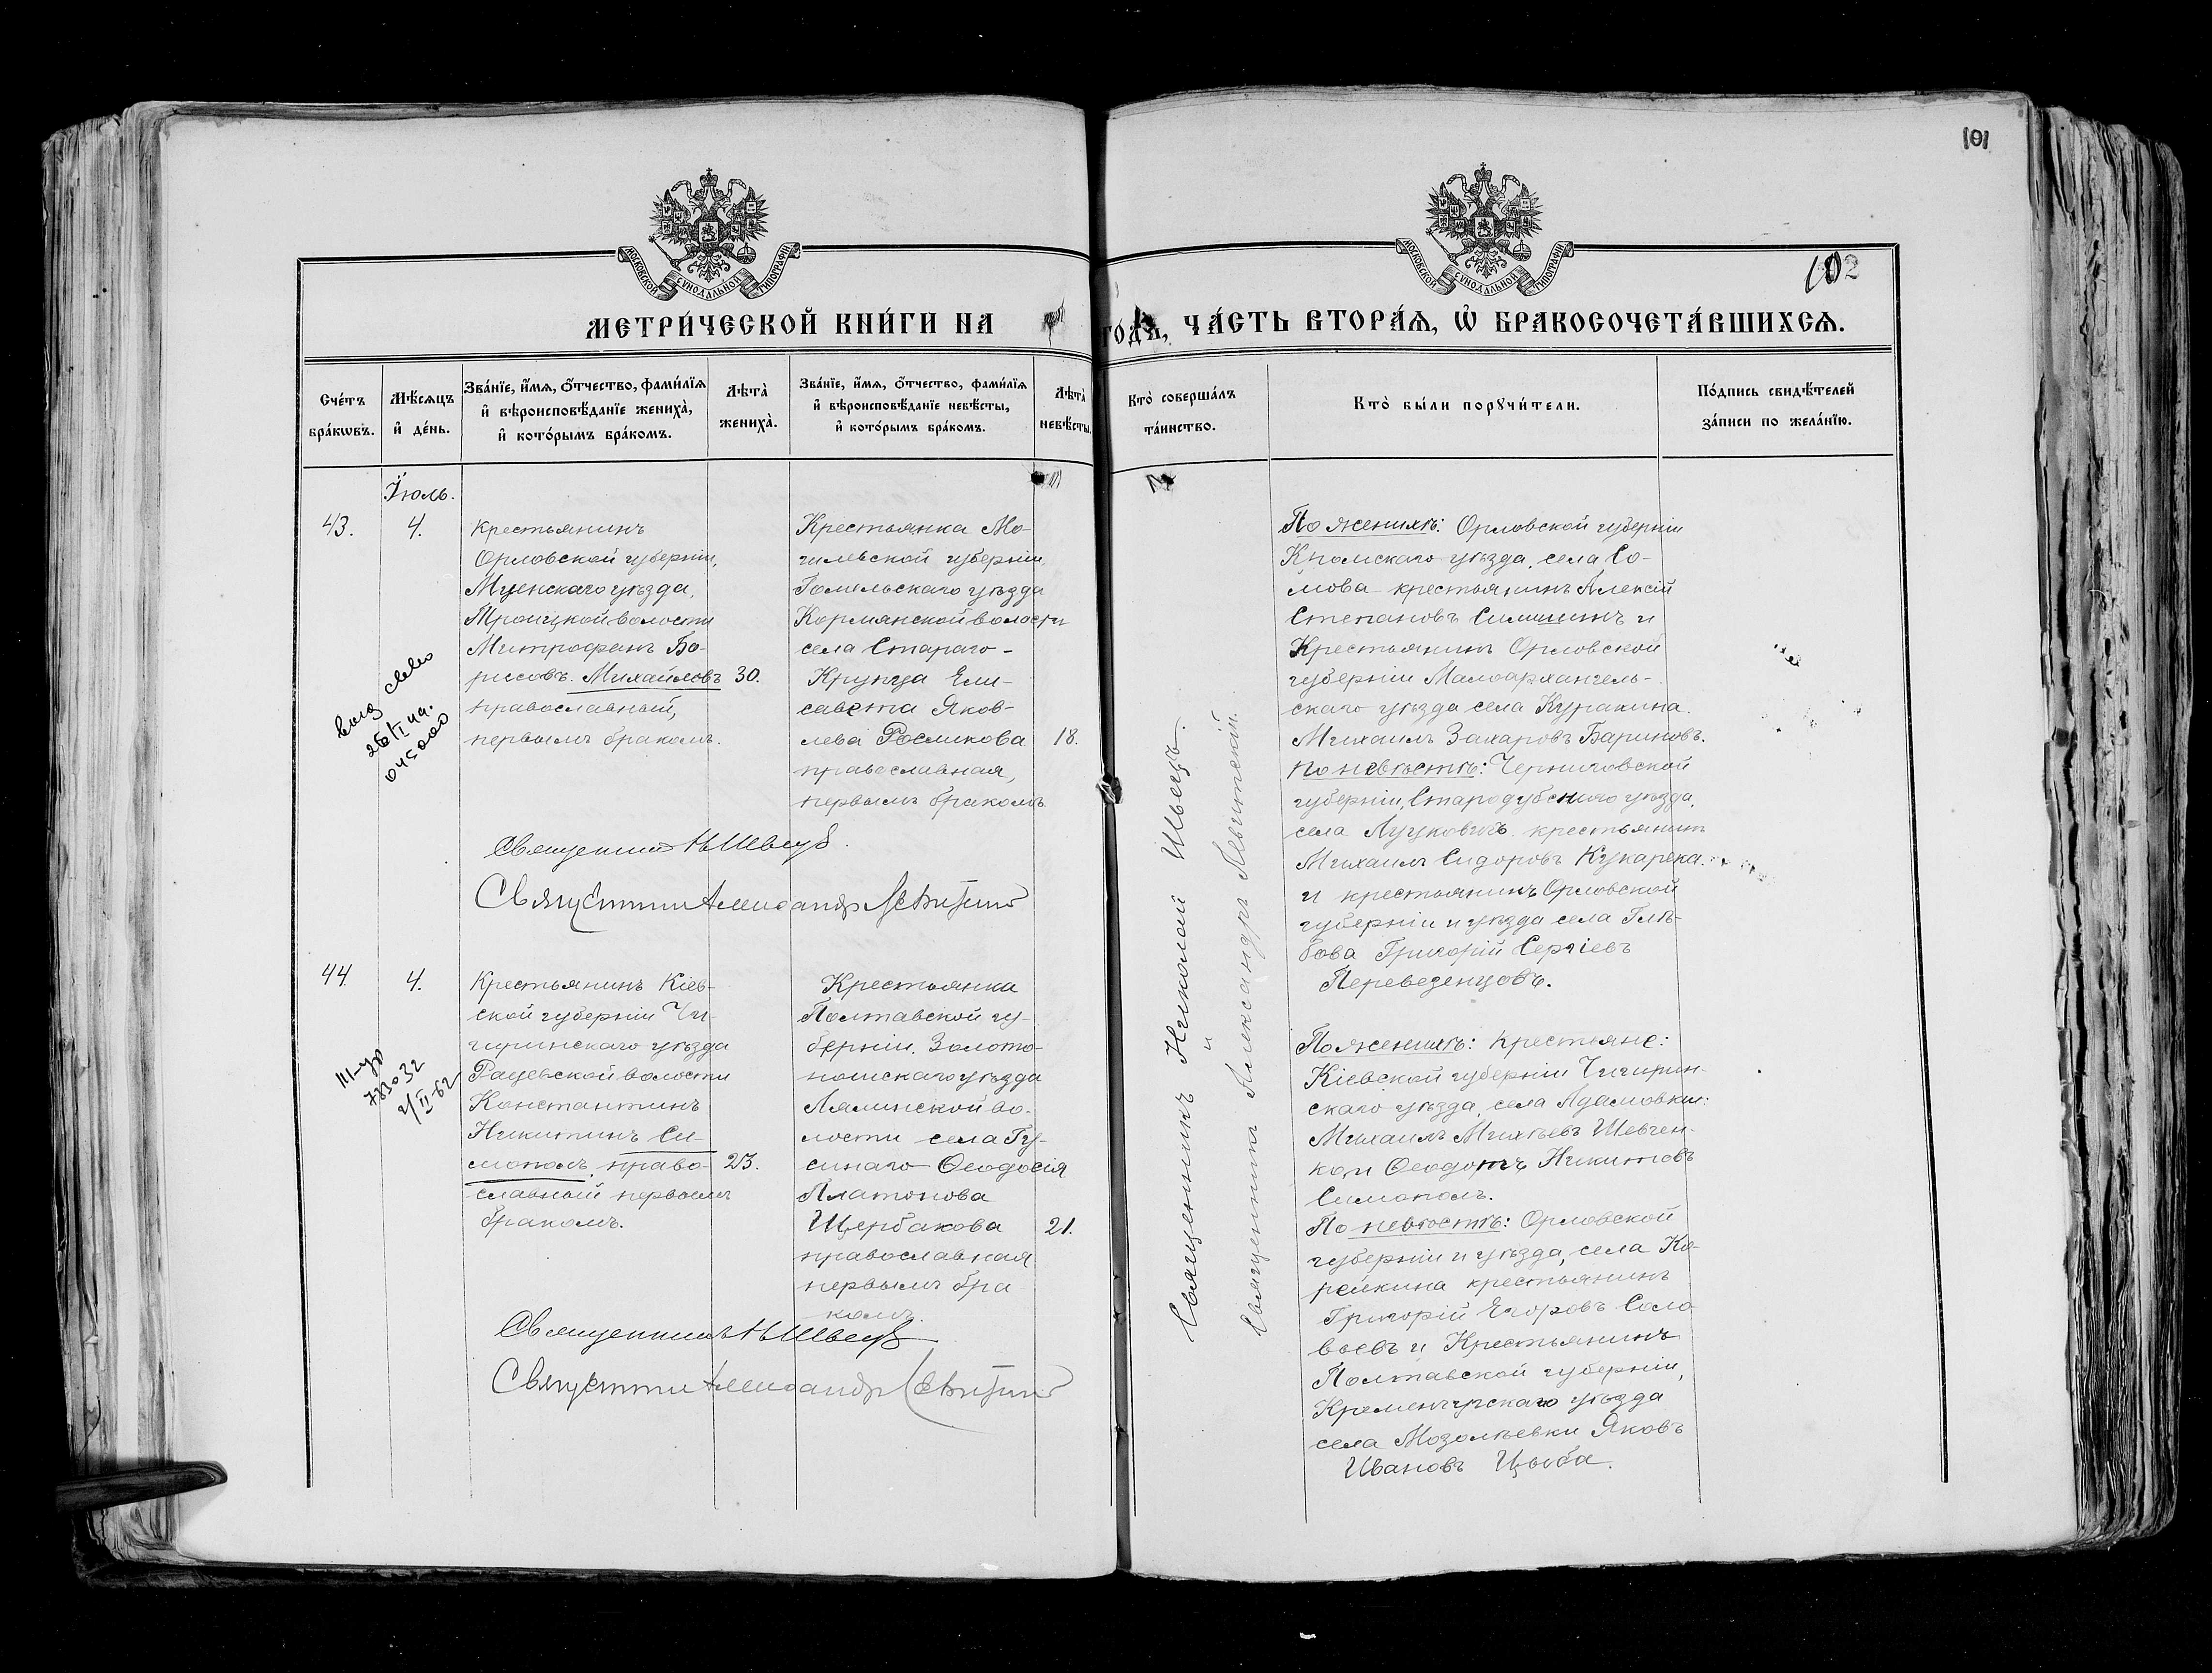 101
102
МОСКОВСКОЙ СѴНОДАЛЬНОЙ ТИПОГРАФІИ
МОСКОВСКОЙ СѴНОДАЛЬНОЙ ТИПОГРАФІИ
МЕТРИ́ЧЕСКОЙ КНИ́ГИ НА
ГО́ДЪ, ЧА́СТЬ ВТОРА́Ѧ, Ѽ БРАКОСОЧЕТА́ВШИХСѦ.
Сче́тъ
бра́кѡвъ.
Мѣ́сѧцъ
и҆ де́нь.
Зва́нїе, и҆́мѧ, ѻ҆́тчество, фами́лїѧ
и҆ вѣроисповѣ́данїе жениха̀,
и҆ кото́рымъ бра́комъ.
Лѣта̀
жениха̀.
Зва́нїе, и҆́мѧ, ѻ҆́тчество, фами́лїѧ
и҆ вѣроисповѣ́данїе невѣ́сты,
и҆ кото́рымъ бра́комъ.
Лѣта̀
невѣ́сты.
Кто̀ соверша́лъ
та́инство.
Кто̀ бы́ли порꙋчи́тели.
По́дпись свидѣ́телей
за́писи по жела́нїю.
Іюль.
43.
4.
Крестьянинъ
Орловской губерніи,
Мценскаго уѣзда,
Троицкой волости
Митрофанъ Бо-
рисовъ Михайловъ
православный,
первымъ бракомъ.
30.
Крестьянка Мо-
гилевской губерніи
Гомельскаго уѣзда
Кормянской волости
села Стараго-
Крупца Ели-
савета Яков-
лева Росликова
православная,
первымъ бракомъ
18.
26/I
045000
Священникъ Н Швецъ.
Священникъ Александръ Левитскій
Священникъ Николай Швецъ.
и
Священникъ Александръ Левитскій.
По женихѣ: Орловской губерніи
Кромскаго уѣзда, села Со-
мова крестьянинъ Алексій
Степановъ Симшинъ и
Крестьянинъ Орловской
губерніи Малоархангель-
скаго уѣзда села Куракина
Михаилъ Захаровъ Бариновъ.
по невѣстѣ: Черниговской
губерніи, Стародубскаго уѣзда,
села Луцковичъ крестьянинъ
Михаилъ Сидоровъ Кукарека.
и крестьянинъ Орловской
губерніи и уѣзда села Глѣ-
бова Григорій Сергіевъ
Переведенцовъ.
44.
4.
Крестьянинъ Кіев-
ской губерніи Чи-
гиринскаго уѣзда
Рацевской волости
Константинъ
Никитинъ Си-
мополь, право-
славный первымъ
бракомъ.
23.
Крестьянка
Полтавской гу-
берніи. Золото-
ношскаго уѣзда
Лялинской во-
лости села Гу-
синаго Ѳеодосія
Платонова
Щербакова
православная
первымъ бра-
комъ.
21.
783032
2/II-62
Священникъ Н Швецъ
Священникъ Александръ Левитскій
По женихѣ: Крестьяне:
Кіевской губерніи Чигирин-
скаго уѣзда, села Адамовки:
Михаилъ Михѣевъ Шевчен-
ко, и Ѳеодотъ Никитовъ
Симополь.
По невѣстѣ: Орловской
губерніи и уѣзда, села Ко-
рейкина крестьянинъ
Григорій Егоровъ Соло-
вьевъ и Крестьянинъ
Полтавской губерніи,
Кременчугскаго уѣзда
села Мозолѣевки Яковъ
Ивановъ Цыба.